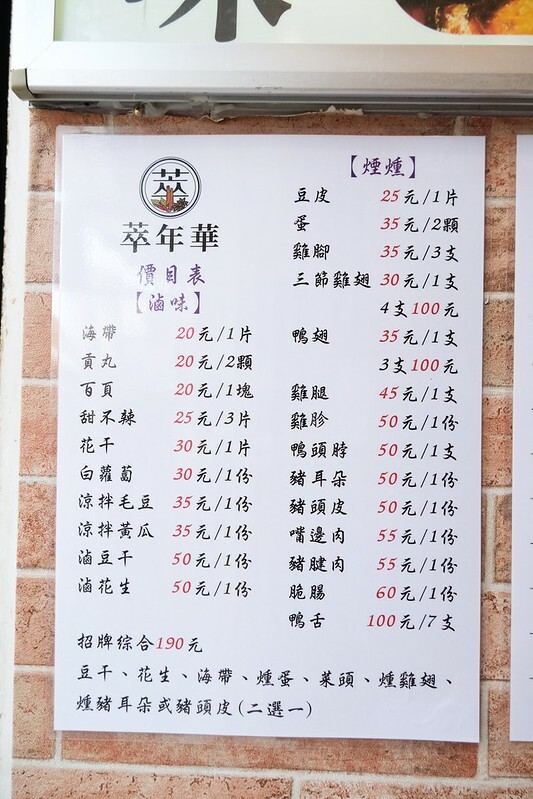 味
萃
萃年華
價目表
【滷味】
海帶 20元/1片
貢丸 20元/2顆
百頁 20元/1塊
甜不辣 25元/3片
花干 30元/1片
白蘿蔔 30元/1份
涼拌毛豆 35元/1份
涼拌黃瓜 35元/1份
滷豆干 50元/1份
滷花生 50元/1份
【煙燻】
豆皮 25元/1片
蛋 35元/2顆
雞腳 35元/3支
三節雞翅 30元/1支
4支100元
鴨翅 35元/1支
3支100元
雞腿 45元/1支
雞胗 50元/1份
鴨頭脖 50元/1支
豬耳朵 50元/1份
豬頭皮 50元/1份
嘴邊肉 55元/1份
豬腱肉 55元/1份
脆腸 60元/1份
鴨舌 100元/7支
招牌綜合190元
豆干、花生、海帶、燻蛋、菜頭、燻雞翅、
燻豬耳朵或豬頭皮(二選一)